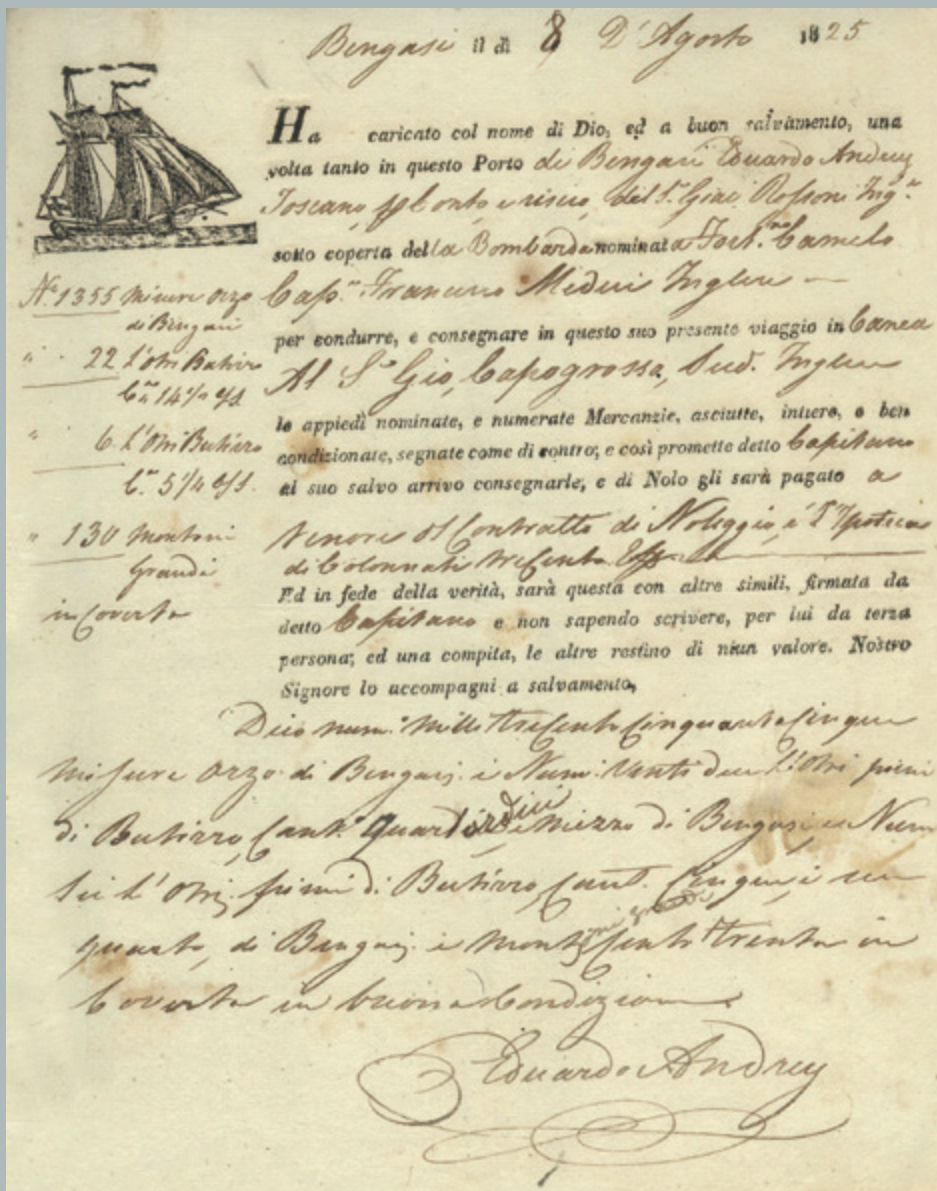 Bengasi il di 8 D'Agosto 1825
Ha caricato col nome di Dio, ed a buon salvamento, una
volta tanto in questo Porto di Bengasi Eduardo Andrey
Toscano conto e risico del Sr. Giac. Rossoni
sotto coperta della Bombarda nominata Camelo
Cap.n Francesco Inglese
per condurre, e consegnare in questo suo presente viaggio in Canea
Al Sr Gio, Capogrossa, Sud. Inglese
le appiedi nominate, e numerate Mercanzie, asciutte, intiere, e ben
condizionate, segnate come di contro; e così promette detto Capitano
al suo salvo arrivo consegnarle, e di Nolo gli sarà pagato a
tenore Contratto di Noleggio, è
di Colonnati trecento
Ed in fede della verità, sarà questa con altre simili, firmata da
detto Capitano e non sapendo scrivere, per lui da terza
persona; ed una compita, le altre restino di niun valore. Nostro
Signore lo accompagni a salvamento,
N.o 1355 Misure Orzo
di Bengasi
" 22 L'Otri Butirro
C.a 14 1/2
" 6 L'Otri Butirro
C.a 5 1/4
" 130 Montoni
Grandi
in Coverta
Dico num.o Mille trecento Cinquanta Cinque
misure Orzo di Bengasi e Num. Venti due L'Otri pieni
di Butirro, Cant.a Quartordici e Mezzo di Bengasi, e Num
Sei L'Otri pieni di Butirro, Cant. Cinque, e un
quarto, di Bengasi e Montoni grandi Cento trenta in
Coverta in buona Condizione
Eduardo Andrey